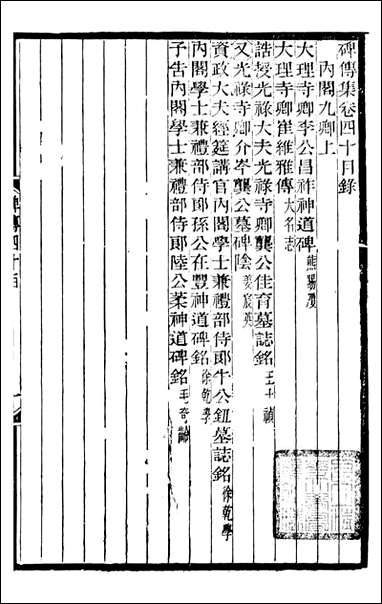 碑傳集卷四十目錄
內閣九卿上
大理寺卿李公昌祚神道碑 熊賜履
大理寺卿崔維雅傳 大名志
誥授光祿大夫光祿寺卿龔公佳育墓誌銘 王士禛
又光祿寺卿介岑龔公墓碑陰 姜宸英
資政大夫經筵講官內閣學士兼禮部侍郎牛公鈕墓誌銘 徐乾學
內閣學士兼禮部侍郎孫公在豐神道碑銘 徐乾學
予告內閣學士兼禮部侍郎陸公棻神道碑銘 毛奇齡